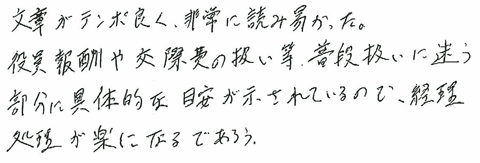 文章がテンポ良く、非常に読み易かった。
役員報酬や交際費の扱い等、普段扱いに迷う
部分に具体的な目安が示されているので、経理
処理が楽になるであろう。